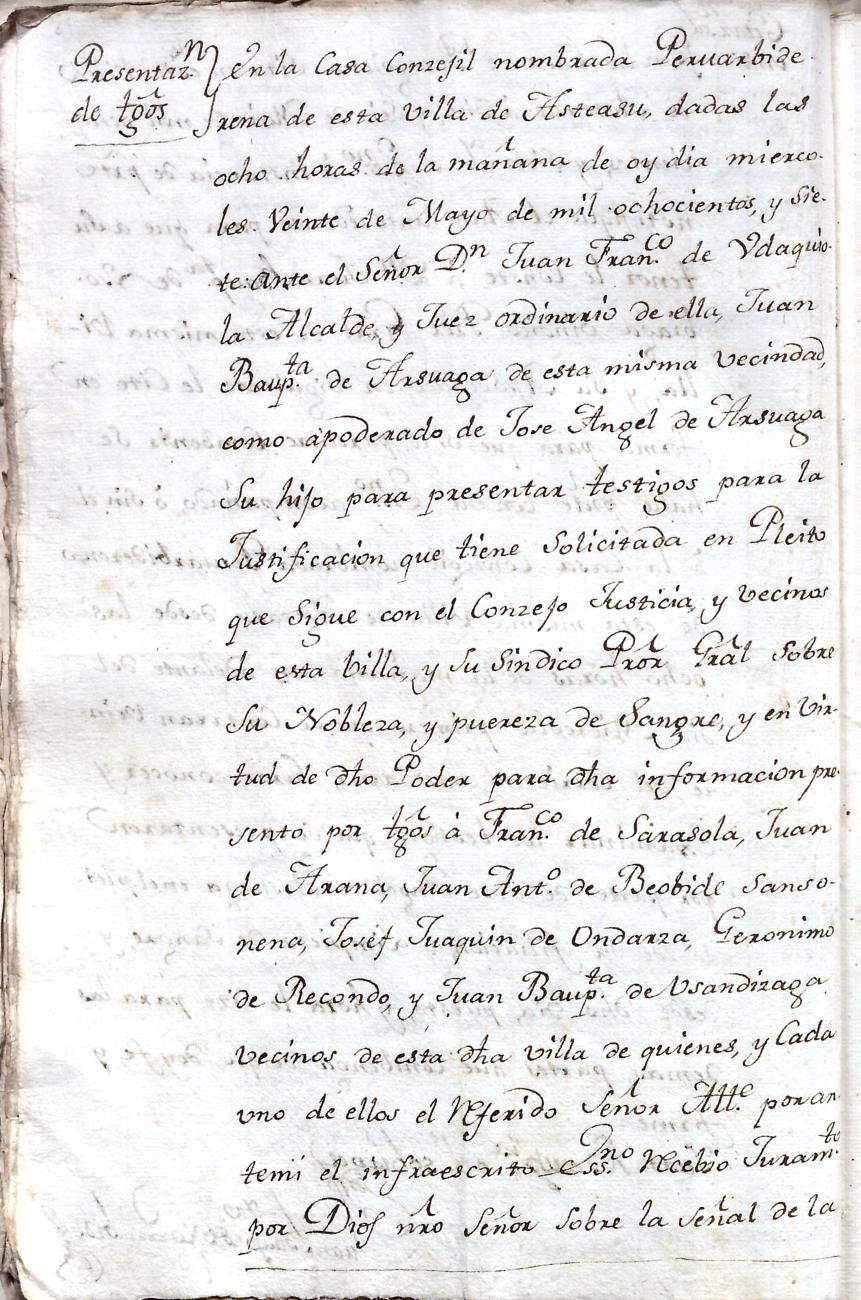 Presentaz.n
de tgõs
En la Casa Conzejil nombrada Peruarbide-
rena de esta villa de Asteasu, dadas las
ocho horas de la mañana de oy dia mierco-
les Veinte de Mayo de mil ochocientos, y Sie-
te: ante el Señor D.n Juan Fran.co de Vdaquio-
la Alcalde, y Juez ordinario de ella, Juan
Baup.ta de Arsuaga de esta misma vecindad,
como apoderado de Jose Angel de Arsuaga
Su hijo para presentar testigos para la
Justificacion que tiene Solicitada en Pleito
que Sigue con el Conzejo Justicia, y vecinos
de esta Villa, y su Sindico Prõr Grãl Sobre
Su Nobleza, y puereza de Sangre, y en Vir-
tud de dho Poder para dha informacion pre-
sento por tgõs à Fran.co de Sarasola, Juan
de Arana, Juan Ant.o de Beobide Sanso-
nena, Josef Juaquin de Ondarza, Geronimo
de Recondo, y Juan Baup.ta de Usandizaga
vecinos de esta dha villa de quienes, y Cada
uno de ellos el Referido Señor Alle. por an-
temi el infraescrito Ess.no Recebio Juram.to
por Dios nro Señor Sobre la señal de la